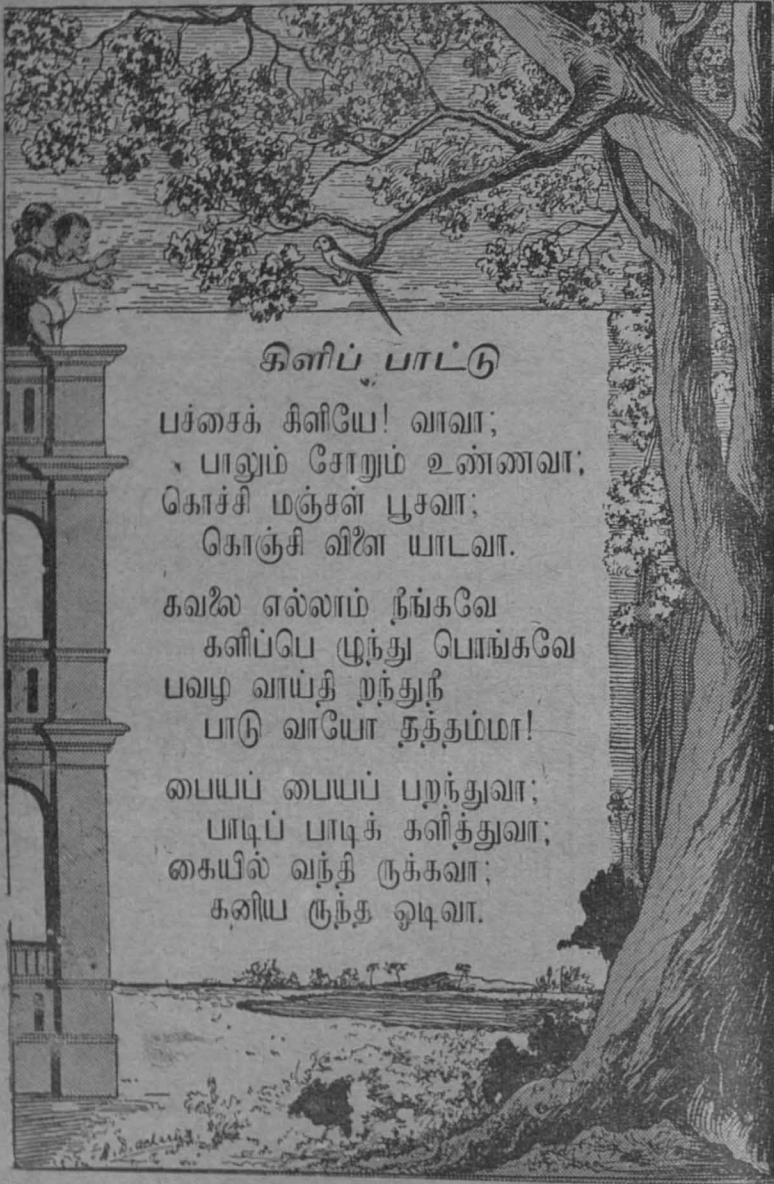 கிளிப் பாட்டு
பச்சைக் கிளியே! வாவா;
பாலும் சோறும் உண்ணவா;
கொச்சி மஞ்சள் பூசவா;
கொஞ்சி விளை யாடவா.
கவலை எல்லாம் நீங்கவே
களிப்பெ ழுந்து பொங்கவே
பவழ வாய்தி றந்துநீ
பாடு வாயோ தத்தம்மா!
பையப் பையப் பறந்துவா;
பாடிப் பாடிக் களித்துவா;
கையில் வந்தி ருக்கவா;
கனிய ருந்த ஓடிவா.